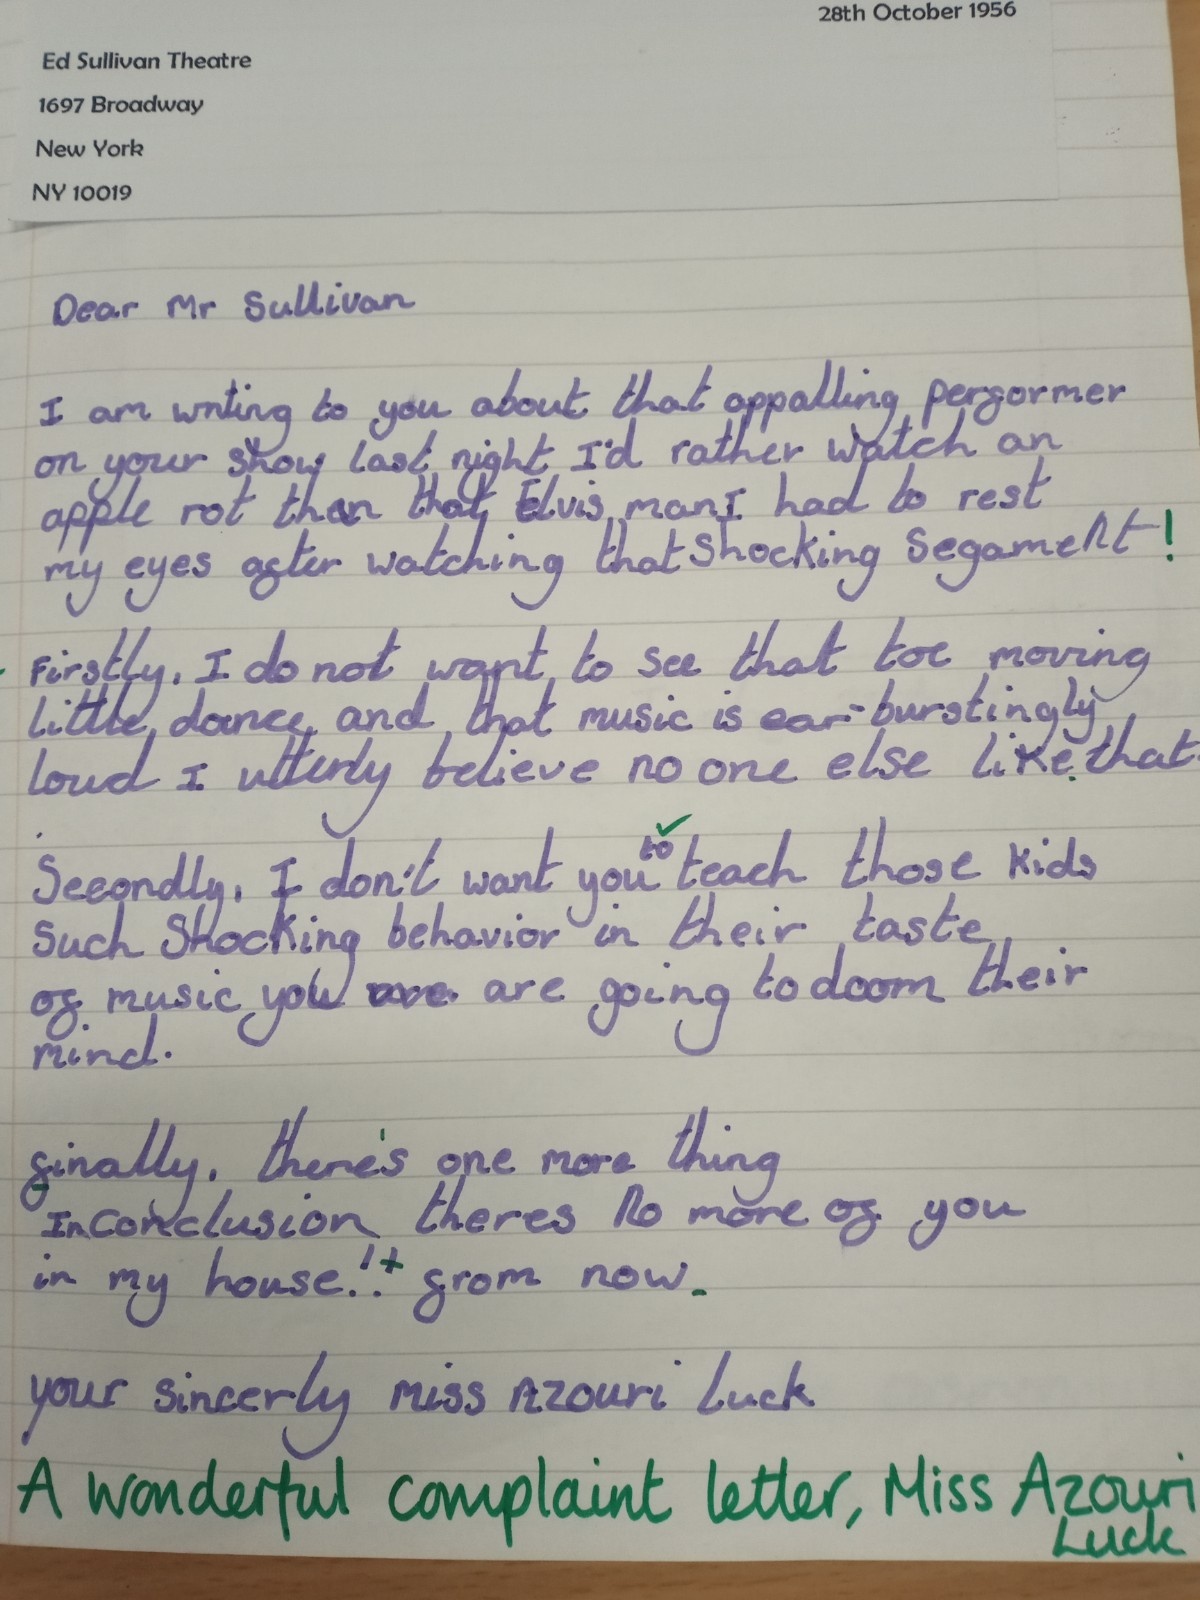 28th October 1956
Ed Sullivan Theatre
1697 Broadway
New York
NY 10019
Dear Mr Sullivan
I am writing to you about that appalling performer
on your show last night I'd rather watch an
apple rot than that Elvis man I had to rest
my eyes after watching that shocking segament!
Firstly, I do not want to see that toe moving
little dance and that music is ear-burstingly
loud I utterly believe no one else like that.
Secondly, I don't want you to teach those kids
such shocking behavior in their taste
of music you are going to doom their
mind.
finally, there's one more thing
In conclusion theres no more of you
in my house!! + from now.
your sincerly miss Azouri Luck
A wonderful complaint letter, Miss Azouri
Luck